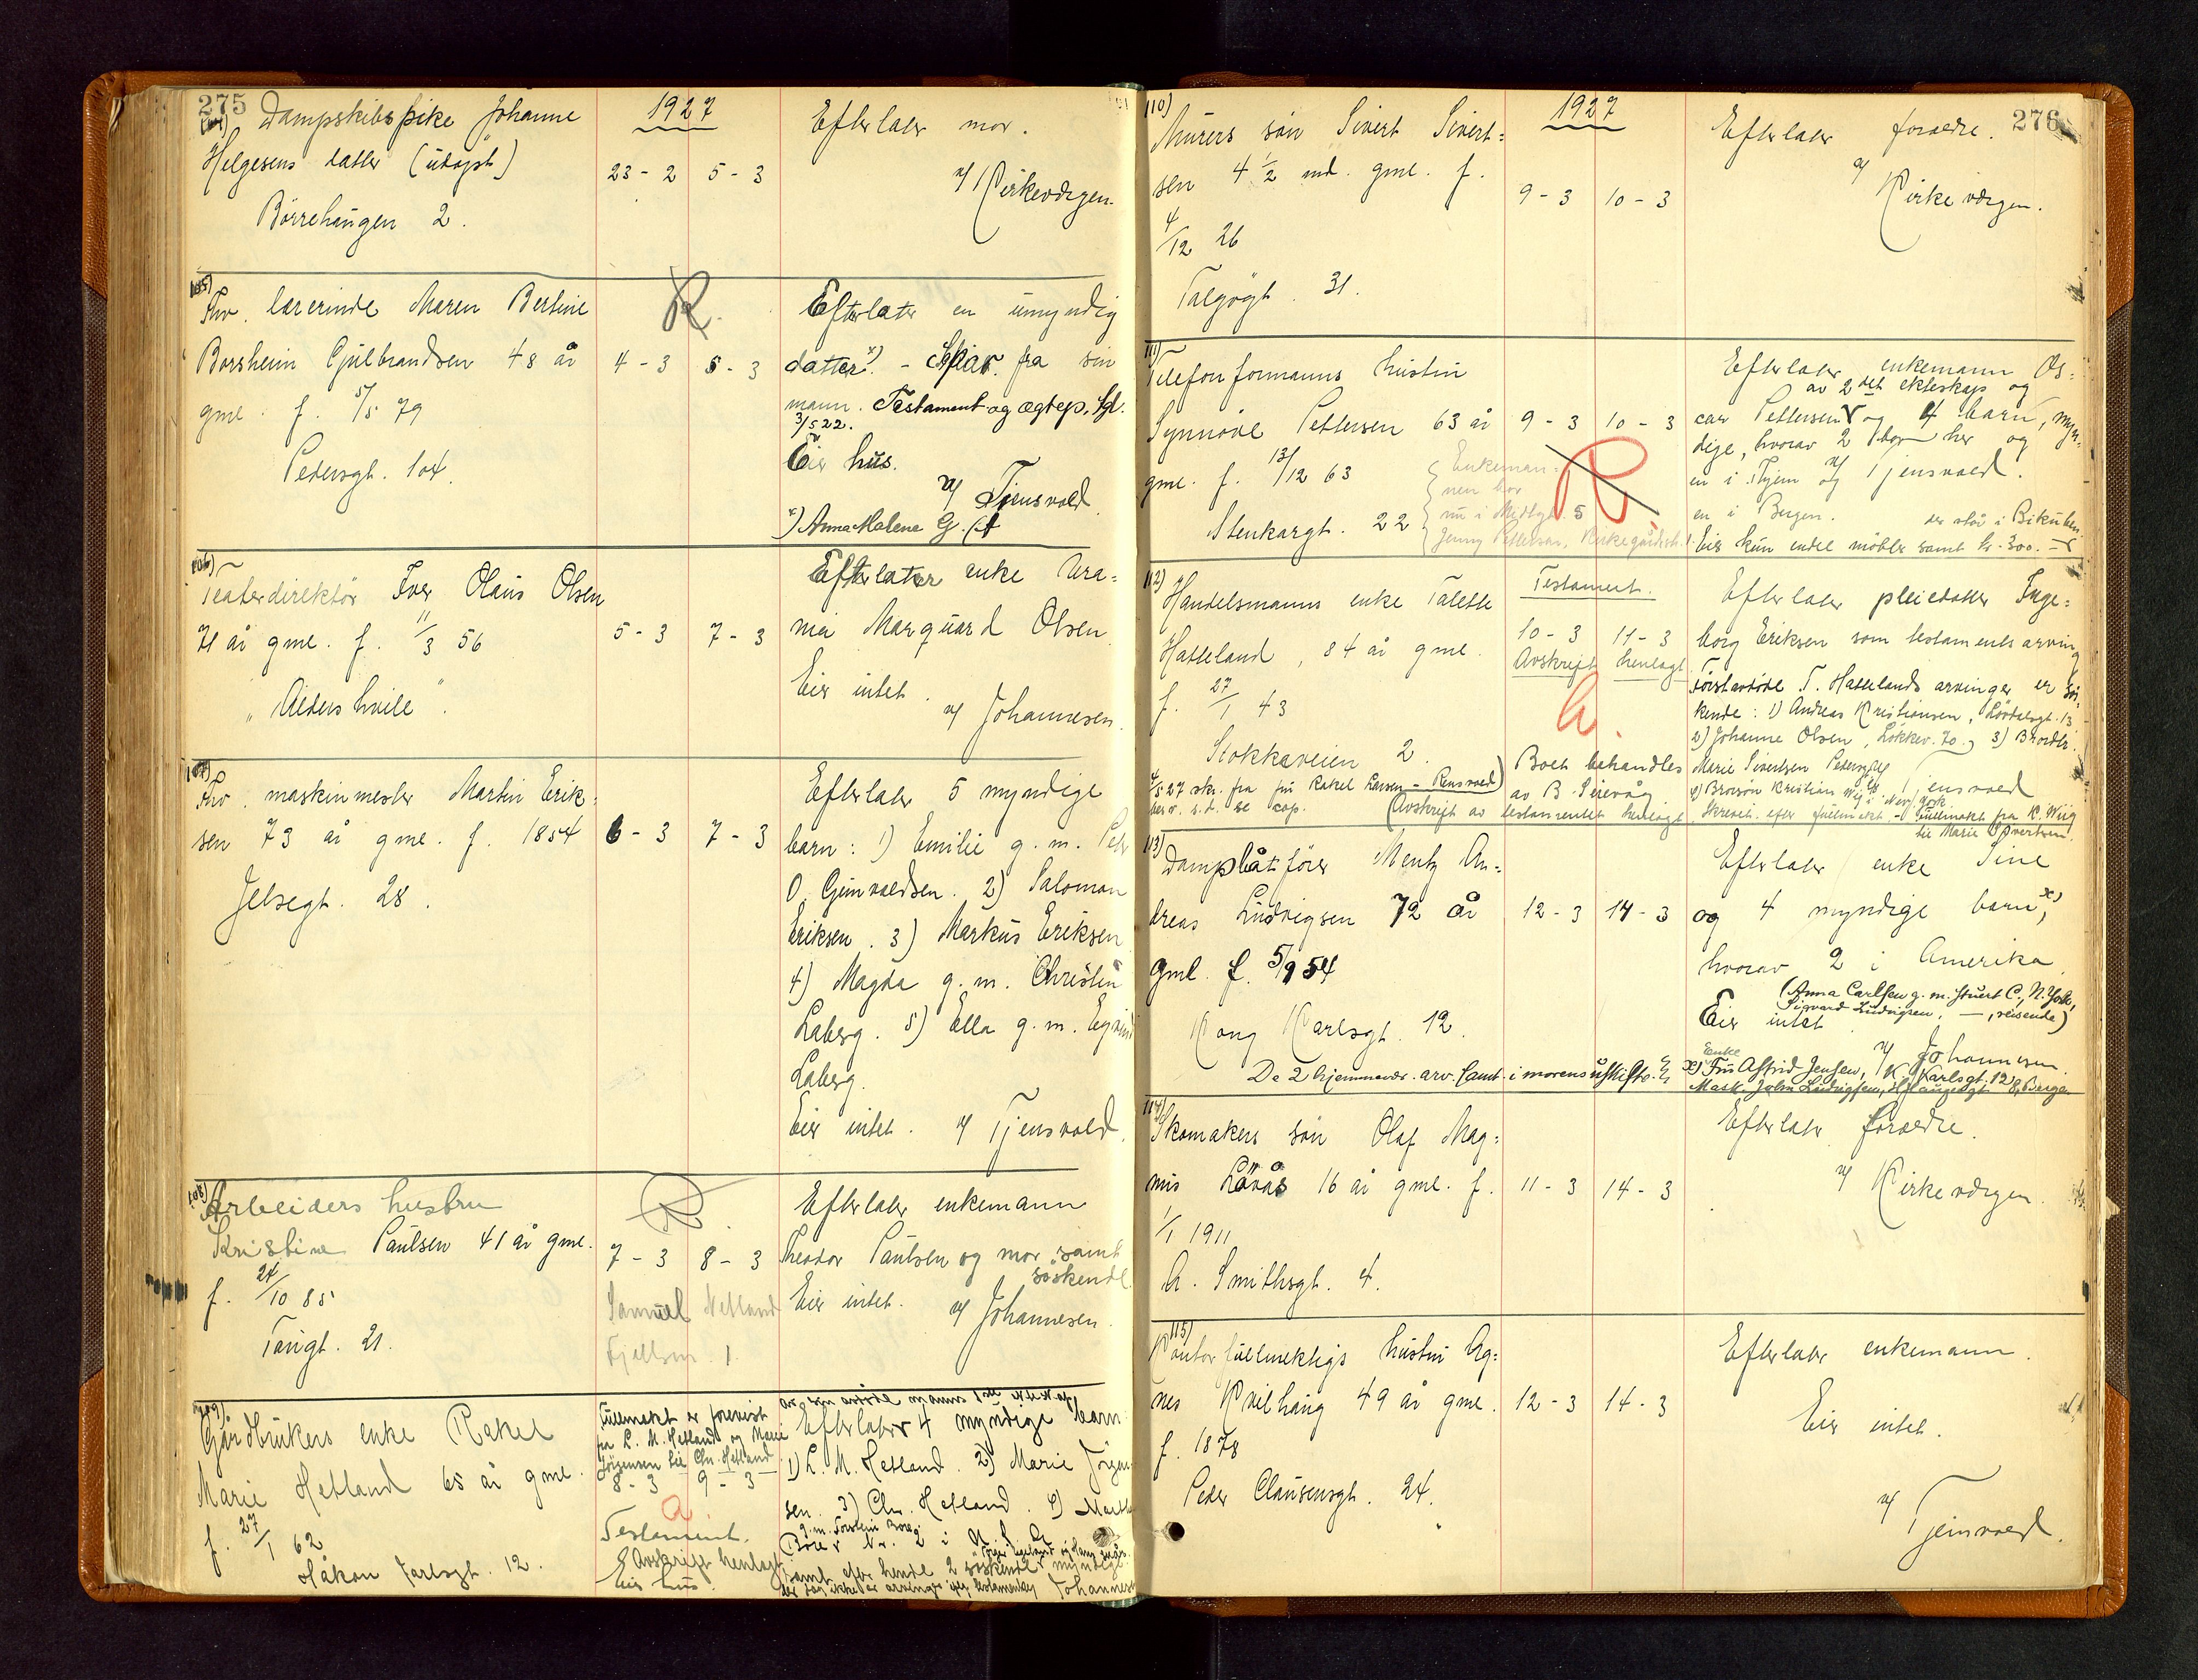 275
1927
104) Dampskibspike Johanne
Helgesens datter (udøpt)
Börrehaugen 2.
23-2 5-3
Efterlater mor.
v/ Kirkevergen.
105)
Fhv. lærerinde Maren Bertine
Borsheim Gulbrandsen 48 år
gml. f. 5/5 79
Pedersgt. 104.
R.
4-3 5-3
Efterlater en umyndig
datter x). - Skiar. fra sin
mann. Testament og ægtep. tgl.
3/5 22.
Eier hus.
v/ Tjensvold
x) Anna Malene G.
106)
Teaterdirektör Iver Olaus Olsen
71 år gml. f. 11/3 56
"Alders hvile".
5-3 7-3
Efterlater enke Ura=
nia Marquard Olsen
Eier intet.
v/ Johannesen.
107)
Fhv. maskinmester Martin Erik=
sen 73 år gml. f. 1854
Jelsegt. 28.
6-3 7-3
Efterlater 5 myndige
barn: 1) Emilie g.m. Peder
O. Geinvaldsen. 2) Salomon
Eriksen. 3) Markus Eriksen
4) Magda g.m. Christen
Laberg. 5) Ella g.m. Eyvind
Laberg.
Eier intet. v/ Tjensvold.
108)
Arbeiders hustru
Kristine Paulsen 41 år gml.
f. 24/10 85
Taugt. 21.
R.
7-3 8-3
Samuel Netland
1.
Efterlater enkemann
Theodor Paulsen og mor samt
söskende
Eier intet. v/ Johannesen.
109)
Gårdbrukers enke Rakel
Marie Hetland 65 år gml.
f. 27/1 62
Håkon Jarlsgt. 12.
Fullmakt er forevist
fra L. M. Hetland og Marie
Jörgensen til Chr. Hetland
8-3 9-3
a
Testament.
Avskrift henlagt
Eier hus.
av sin avdöde manns 1ste ektesk.
Efterlater 4 myndige barn
1) L. M. Hetland. 2) Marie Jörgen=
sen. 3) Chr. Hetland. 4)
g.m. Torstein Boreg
samt efter hende 2 söskende myndige
Johannesen
276
1927
110)
Murers sön Sivert Sivert=
sen 4 1/2 md. gml. f.
4/12 26
Talgögt. 31.
9-3 10-3
Efterlater foraedre.
v/ Kirkevergen.
111)
Telefonformanns hustru
Synnöve Pettersen 63 år
gml. f. 13/12 63
Stenkargt. 22
9-3 10-3
Enkeman=
nen bor
nu i Midtgt. 5
Jenny Pettersen, Kirkegårdsvt. 1.
R
Efterlater enkemann Os=
av 2det ekteskap og
car Pettersen og 4 barn, myn=
dige, hvorav 2 bor her og
en i Hjem v/ Tjensvold.
en i Bergen. der står i Bikuben
Eier kun endel möbler samt kr. 300.-
112)
Handelsmanns enke Talette
Hatteland, 84 år gml.
f. 27/1 43
Stokkaveien 2.
Testament.
10-3 11-3
Avskrift henlagt.
a.
Boet behandles
av B.
4/5 27 skr. fra fru Rakel Larsen - Rensvold)
(Avskrift av testamentet henlagt.
Efterlater pleiedatter Inge=
borg Eriksen som testaments arving
Förstavdöde T. Hattelands arvinger er sös=
kende: 1) Andreas Kristiansen, Lövdalsgt. 13
2) Johanne Olsen, Løkkev. 70. 3) Brordtr.
Marie Sivertsen Pedersgt.
v/ Tjensvold
4) Brorsön Kristian Wiig i New York
Skrevet efter fullmakt - fullmakt fra K. Wiig
til Marie Sivertsen.
113)
Dampbåtförer Mentz An=
dreas Ludvigsen 72 år
gml. f. 5/9 54
Kong Karlsgt. 12.
12-3 14-3
Efterlater enke Sine
og 4 myndige barn x),
hvorav 2 i Amerika.
(Anna Carlsen g.m. Stuert C., N. York,
Sigvard Ludvigsen, — , reisende)
Eier intet
v/ Johannesen.
De 2 hjemmevær. arv. samt. i morens uskifte.
Enke
x) Fru Astrid Jensen, K. Karlsgt. 12
Mask. John Ludvigsen, Bergen
114)
Skomakers sön Olaf Mag=
nus Lövås 16 år gml. f.
1/1 1911
A. Smithsgt. 4.
11-3 14-3
Efterlater foraedre.
v/ Kirkevergen.
115)
Kontorfullmektigs hustru Ag=
nes Kvilhaug 49 år gml.
f. 1878
Peder Clausensgt. 24.
12-3 14-3
Efterlater enkemann.
Eier intet.
v/ Tjensvold.